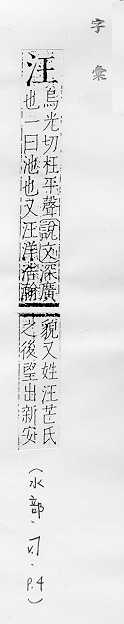 字彙
汪
烏光切枉平聲說文深廣
也一曰池也又汪洋浩瀚
貌又姓汪芒氏
之後望出新安
(水部· · P.4)